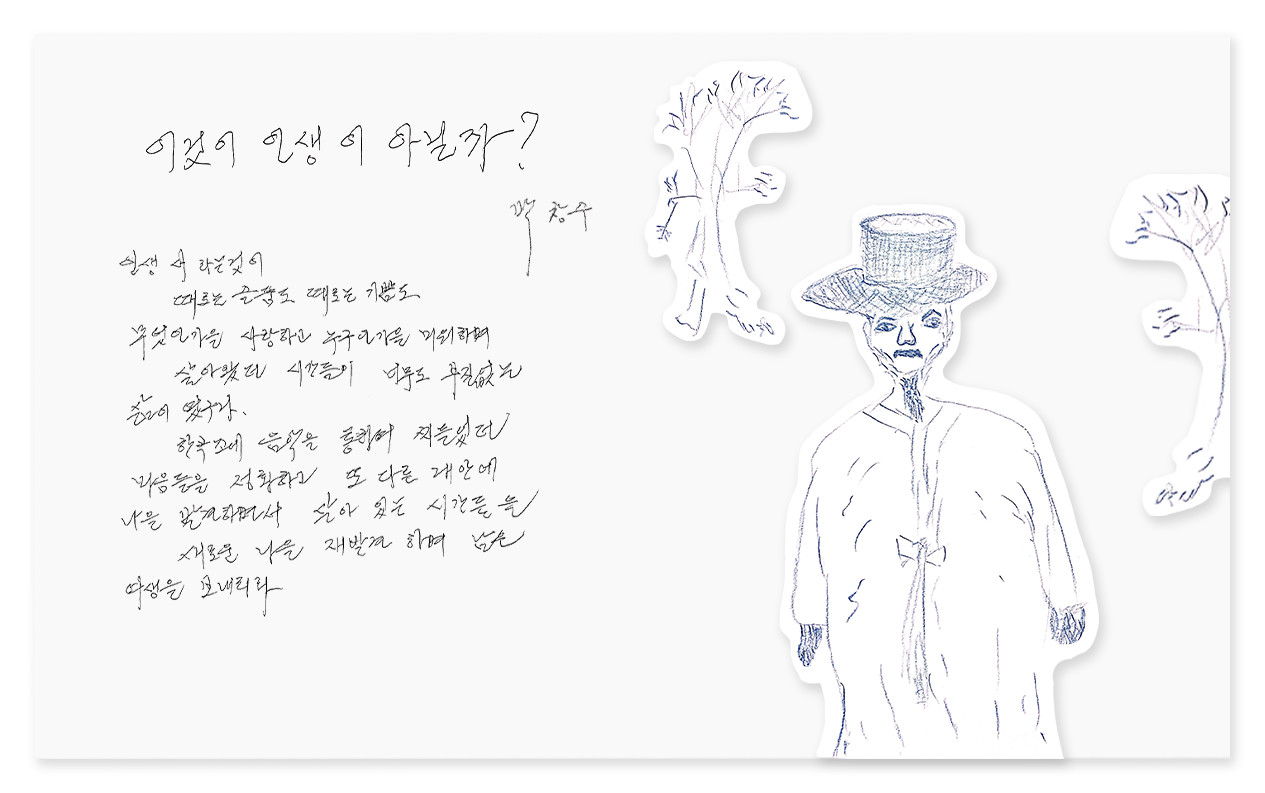 이것이 인생이 아닐까?
박창수
인생 사 라는것이
때로는 슬픔도 때로는 기쁨도
무엇인가를 사랑하고 누구인가를 미워하며
살아왔던 시간들이 너무도 부질없는
삶이 였구나.
한곡조에 음악을 통하여 찌들었던
마음들을 정화하고 또 다른 내안에
나를 발견하면서 살아 있는 시간들을
새로운 나를 재발견 하며 남은
여생을 보내리라